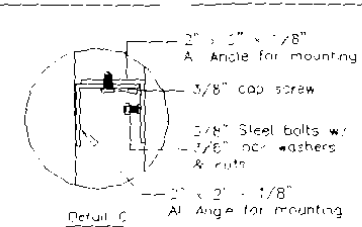 2" x 2" x 1/8"
Al Angle for mounting
3/8" cap screw
3/8" Steel bolts w/
3/8" lock washers
& nuts
2" x 2" x 1/8"
Al Angle for mounting
Detail C